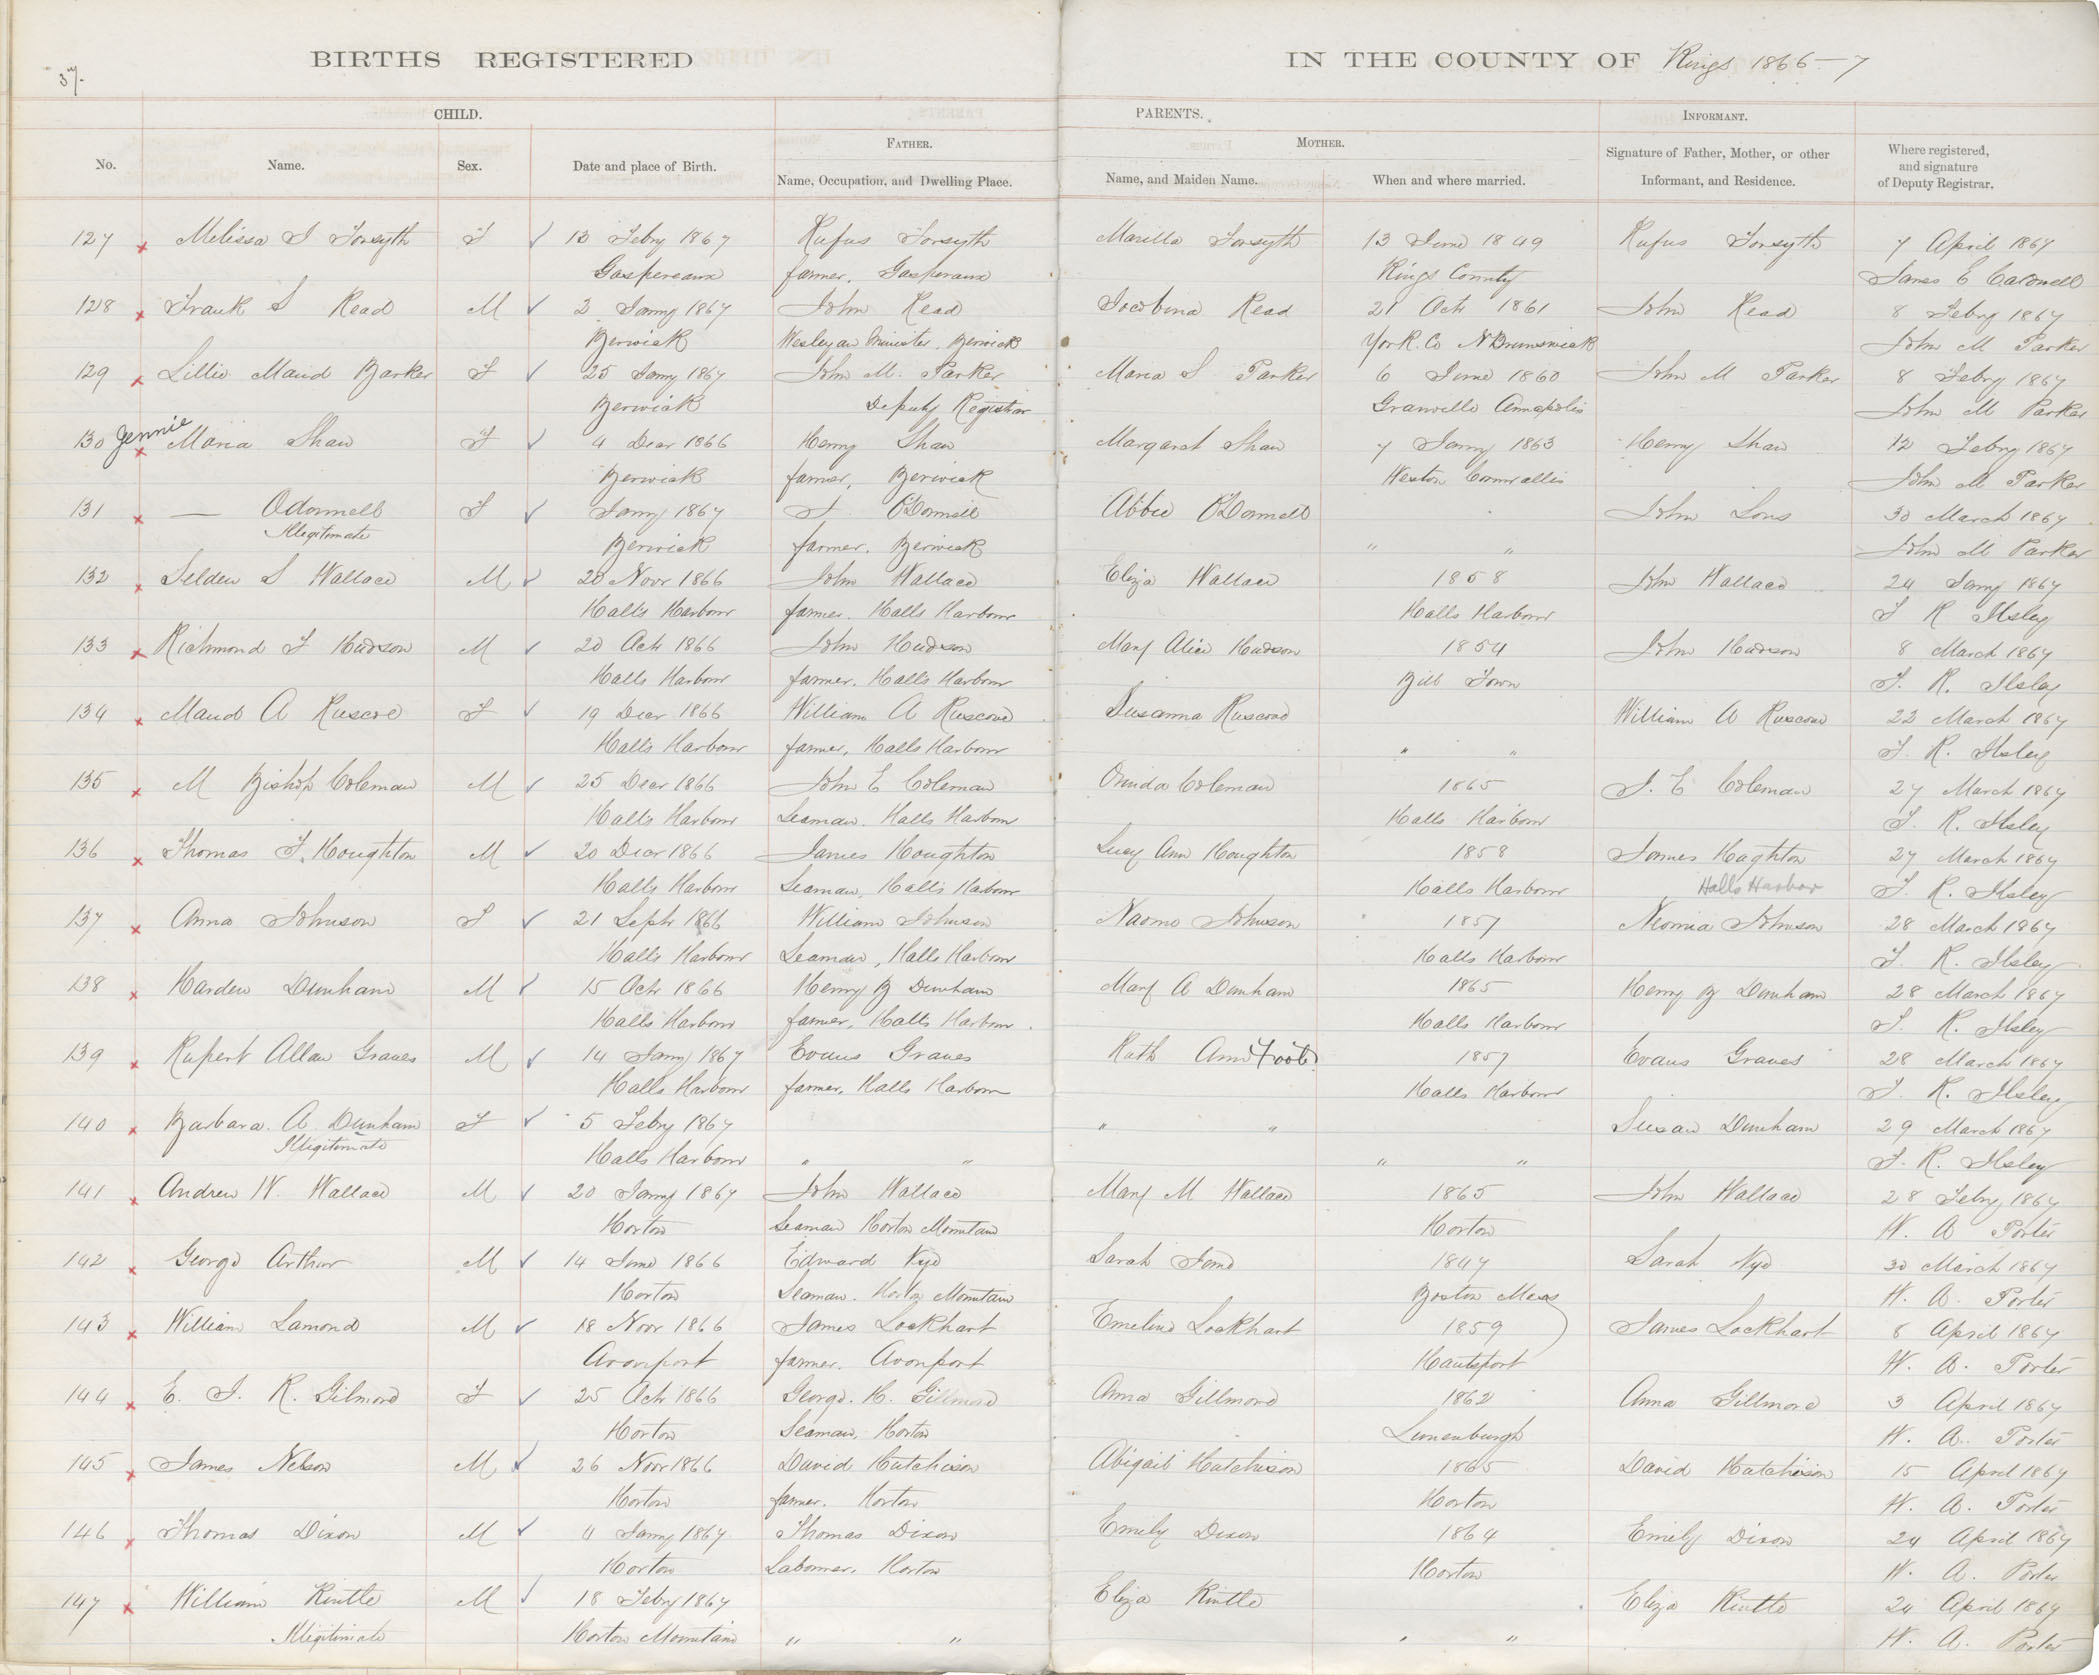 37.
BIRTHS REGISTERED IN THE COUNTY OF Kings 1866-7
CHILD. PARENTS. INFORMANT.
FATHER. MOTHER.
No. Name. Sex. Date and place of Birth. Name, Occupation, and Dwelling Place. Name, and Maiden Name. When and where married. Signature of Father, Mother, or other Informant, and Residence. Where registered, and signature of Deputy Registrar.
127 Melissa J Forsyth F 13 Febry 1867 Rufus Forsyth Marilla Forsyth 13 June 1849 Rufus Forsyth 7 April 1867
Gaspereaux farmer, Gaspereaux Kings County James E Caldwell
128 Frank S Read M 2 Janry 1867 John Read Jacobina Read 21 Octr 1861 John Read 8 Febry 1867
Berwick Wesleyan Minister, Berwick York Co N Brunswick John M Parker
129 Lillie Maud Barker F 25 Janry 1867 John M. Parker Maria S Parker 6 June 1860 John M Parker 8 Febry 1867
Berwick Deputy Registrar Granville Annapolis John M Parker
130 Jennie Maria Shaw F 4 Decr 1866 Henry Shaw Margaret Shaw 7 Janry 1863 Henry Shaw 12 Febry 1867
Berwick farmer, Berwick Weston Cornwallis John M Parker
131 — Odonnell F Janry 1867 O'Donnell Abbie O'Donnell John Lons 30 March 1867
Illegitimate Berwick farmer. Berwick " " John M Parker
132 Selden S Wallace M 20 Novr 1866 John Wallace Eliza Wallace 1858 John Wallace 24 Janry 1867
Halls Harbour farmer. Halls Harbour Halls Harbour F R Ilsley
133 Richmond F Hudson M 20 Octr 1866 John Hudson Mary Alice Hudson 1854 John Hudson 8 March 1867
Halls Harbour farmer. Halls Harbour Bill Town F. R. Ilsley
134 Maud A Ruscoe F 19 Decr 1866 William A Ruscoe Susanna Ruscoe William A Ruscoe 22 March 1867
Halls Harbour farmer, Halls Harbour " " F. R. Ilsley
135 M Bishop Coleman M 25 Decr 1866 John E Coleman Orinda Coleman 1865 J. E Coleman 27 March 1867
Halls Harbour Seaman. Halls Harbour Halls Harbour F. R. Ilsley
136 Thomas F. Houghton M 20 Decr 1866 James Houghton Lucy Ann Houghton 1858 James Haghton 27 March 1867
Halls Harbour Seaman, Halls Harbour Halls Harbour Halls Harbor F. R. Ilsley
137 Anna Johnson F 21 Septr 1866 William Johnson Naomo Johnson 1857 Neomia Johnson 28 March 1867
Halls Harbour Seaman, Halls Harbour Halls Harbour F. R. Ilsley
138 Harden Dunham M 15 Octr 1866 Henry B Dunham Mary A Dunham 1865 Henry B Dunham 28 March 1867
Halls Harbour farmer, Halls Harbour. Halls Harbour F. R. Ilsley
139 Rupert Allan Graves M 14 Janry 1867 Evans Graves Ruth Ann Foote 1857 Evans Graves 28 March 1867
Halls Harbour farmer, Halls Harbour Halls Harbour F. R. Ilsley
140 Barbara. A. Dunham F 5 Febry 1867 " " Susan Dunham 29 March 1867
Illegitimate Halls Harbour " " " " F. R. Ilsley
141 Andrew W. Wallace M 20 Janry 1867 John Wallace Mary M Wallace 1865 John Wallace 28 Febry 1867
Horton Seaman Horton Mountain Horton W. A Porter
142 George Arthur M 14 June 1866 Edward Nye Sarah Jane 1847 Sarah Nye 30 March 1867
Horton Seaman. Horton Mountain Boston Mass W. A. Porter
143 William Lamond M 18 Novr 1866 James Lockhart Emeline Lockhart 1859 James Lockhart 8 April 1867
Avonport farmer. Avonport Hantsport W. A. Porter
144 E. J. R. Gilmore F 25 Octr 1866 George. H. Gillmore Anna Gillmore 1862 Anna Gillmore 3 April 1867
Horton Seaman, Horton Lunenburgh W. A. Porter
145 James Nelson M 26 Novr 1866 David Hutchison Abigail Hutchison 1865 David Hutchison 15 April 1867
Horton farmer. Horton Horton W. A. Porter
146 Thomas Dixon M 4 Janry 1867 Thomas Dixon Emily Dixon 1864 Emily Dixon 24 April 1867
Horton Labourer. Horton Horton W. A. Porter
147 William Kintle M 18 Febry 1867 Eliza Kintle Eliza Kintle 24 April 1867
Illegitimate Horton Mountain " " " " W. A. Porter